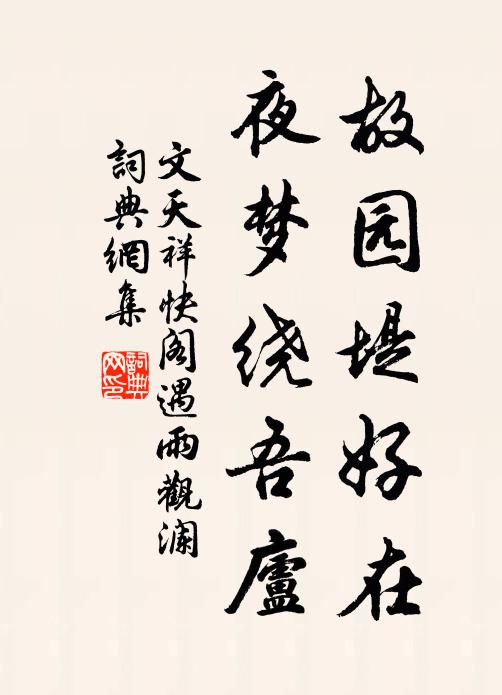 故园堤好在
夜梦绕吾廬
文天祥快阁遇雨觀澜
詞典網集
詞典网印